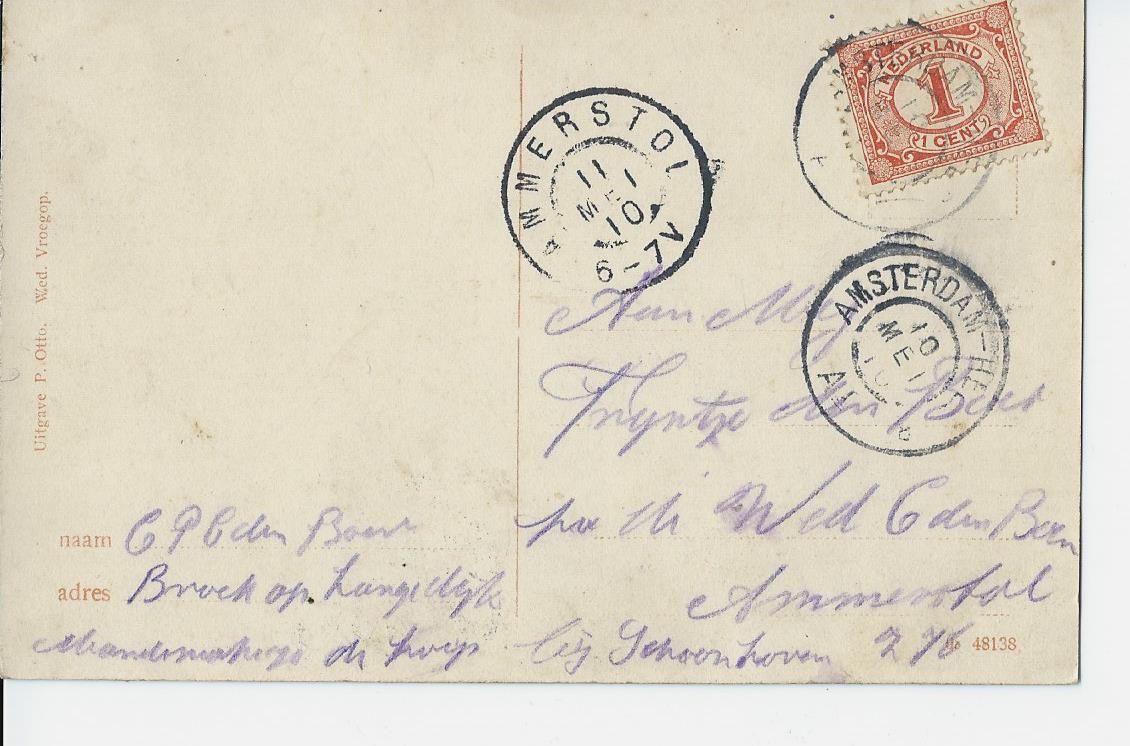 NEDERLAND
1
1 CENT
AMMERSTOL
11 MEI 10
6-7V
AMSTERDAM-HE
10 MEI 10
Uitgave P. Otto. Wed. Vroegop.
Aan Mej
Tryntje den Boer
p/a de Wed C den Boer
Ammerstol
bij Schoonhoven
48138
naam C P C den Boer
adres Broek op Langedijk